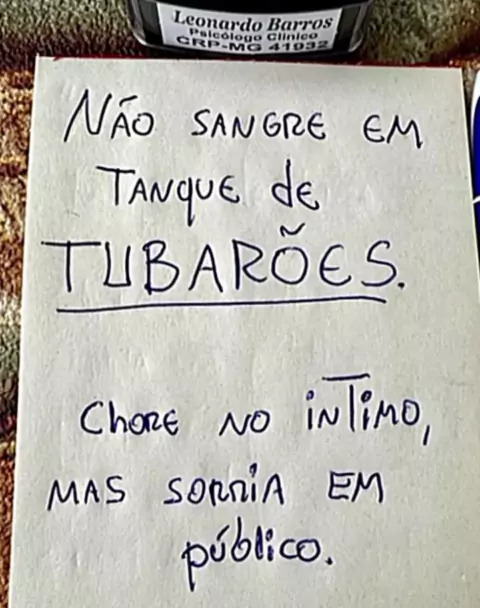 Leonardo Barros
Psicólogo Clínico
CRP-MG 41932
NÃO SANGRE EM
TANQUE de
TUBARÕES.
CHORE NO íNTiMO,
MAS SORRiA EM
público.